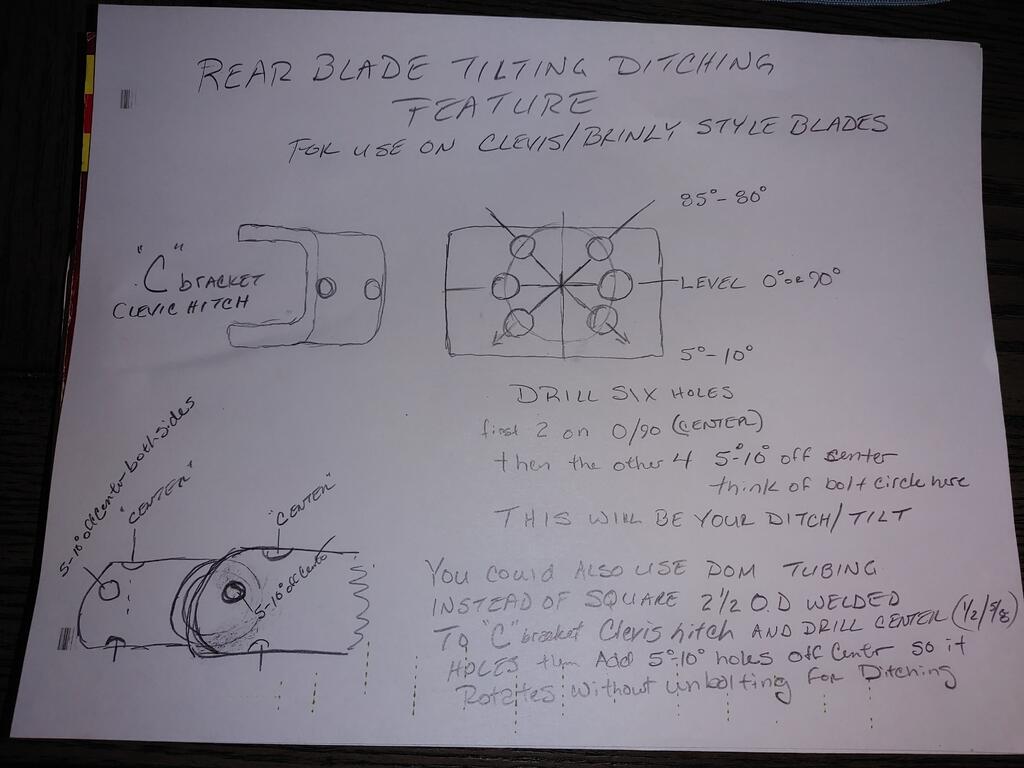 REAR BLADE TILTING DITCHING
FEATURE
FOR USE ON CLEVIS/BRINLY STYLE BLADES
"C" bracket
CLEVIC HITCH
85°-80°
LEVEL 0° or 90°
5°-10°
DRILL SIX HOLES
first 2 on 0/90 (CENTER)
then the other 4 5°-10° off center
think of bolt circle here
THIS WILL BE YOUR DITCH/TILT
5-10° off Center-both-sides
"CENTER"
"CENTER"
5-10° off Center
YOU COULD ALSO USE DOM TUBING
INSTEAD OF SQUARE 2 1/2 O.D WELDED
TO "C" bracket Clevis hitch AND DRILL CENTER (1/2/5/8)
HOLES then Add 5°-10° holes off Center so it
Rotates without unbolting For Ditching